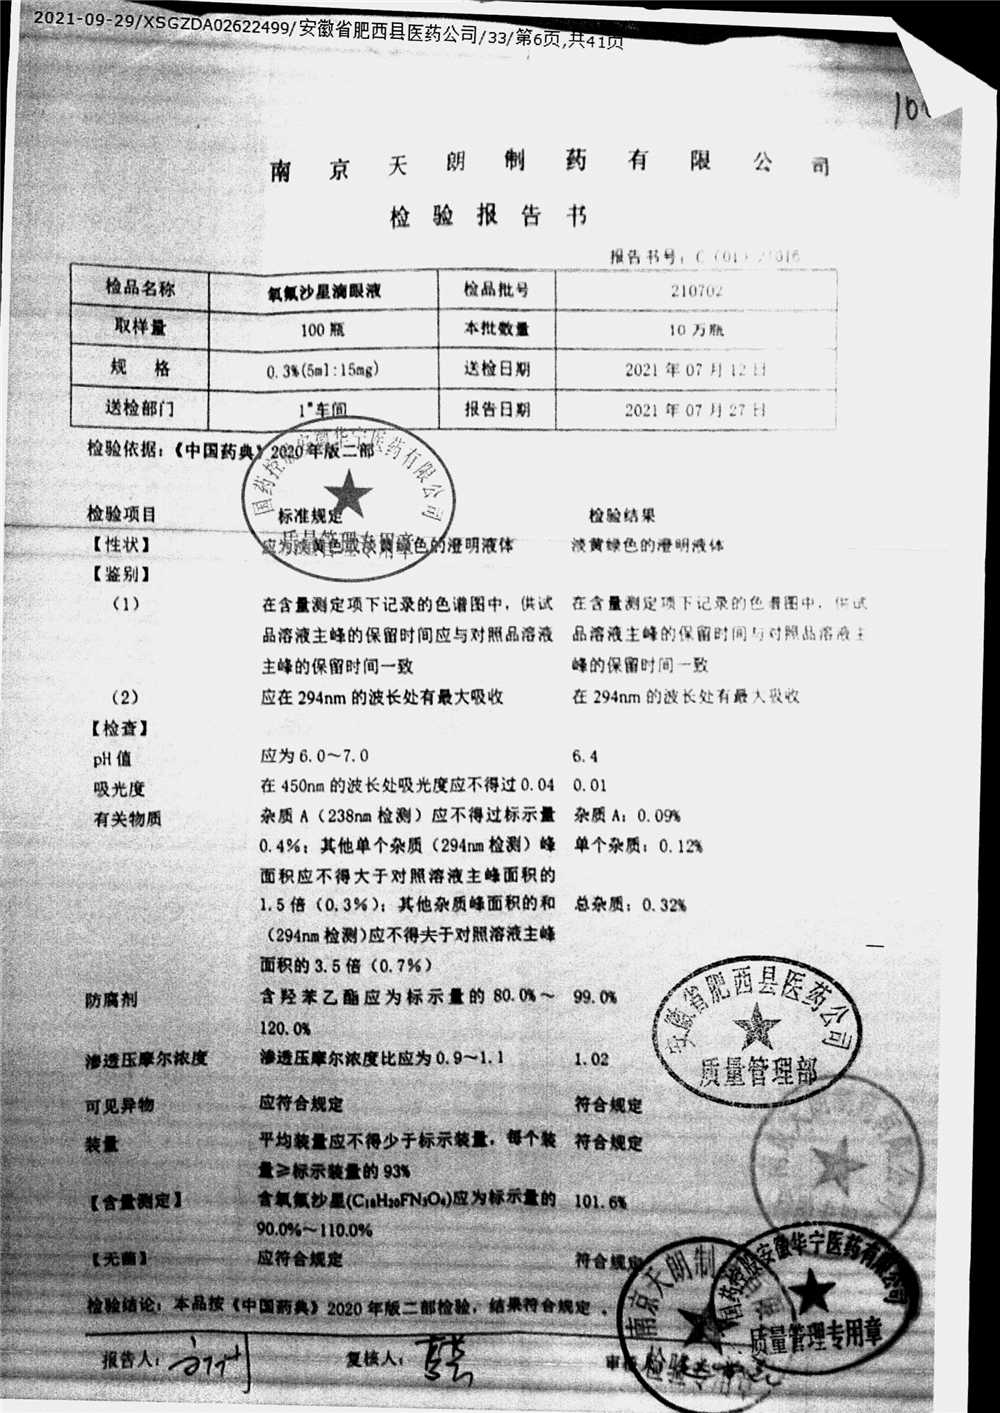 2021-09-29/XSGZDA02622499/安徽省肥西县医药公司/33/第6页,共41页
南京天朗制药有限公司
检验报告书
报告书号:
检品名称 氧氟沙星滴眼液 检品批号 210702
取样量 100瓶 本批数量 10万瓶
规 格 0.3%(5ml:15mg) 送检日期 2021年07月12日
送检部门 1#车间 报告日期 2021年07月27日
检验依据:《中国药典》2020年版二部
检验项目 标准规定 检验结果
【性状】 应为淡黄色或淡黄绿色的澄明液体 淡黄绿色的澄明液体
【鉴别】
(1) 在含量测定项下记录的色谱图中,供试 在含量测定项下记录的色谱图中,供试
品溶液主峰的保留时间应与对照品溶液 品溶液主峰的保留时间与对照品溶液主
主峰的保留时间一致 峰的保留时间一致
(2) 应在294nm的波长处有最大吸收 在294nm的波长处有最大吸收
【检查】
pH值 应为6.0~7.0 6.4
吸光度 在450nm的波长处吸光度应不得过0.04 0.01
有关物质 杂质A(238nm检测)应不得过标示量 杂质A:0.09%
0.4%;其他单个杂质(294nm检测)峰 单个杂质:0.12%
面积应不得大于对照溶液主峰面积的
1.5倍(0.3%);其他杂质峰面积的和 总杂质:0.32%
(294nm检测)应不得大于对照溶液主峰
面积的3.5倍(0.7%)
防腐剂 含羟苯乙酯应为标示量的80.0%~ 99.0%
120.0%
渗透压摩尔浓度 渗透压摩尔浓度比应为0.9~1.1 1.02
可见异物 应符合规定 符合规定
装量 平均装量应不得少于标示装量,每个装 符合规定
量≥标示装量的93%
【含量测定】 含氧氟沙星(C18H20FN3O4)应为标示量的 101.6%
90.0%~110.0%
【无菌】 应符合规定 符合规定
检验结论:本品按《中国药典》2020年版二部检验,结果符合规定。
报告人: 复核人: 审
国药控股安徽华宁医药有限公司
质量管理专用章
安徽省肥西县医药公司
质量管理部
南京天朗制
检验专
国药控股安徽华宁医药有限公司
质量管理专用章